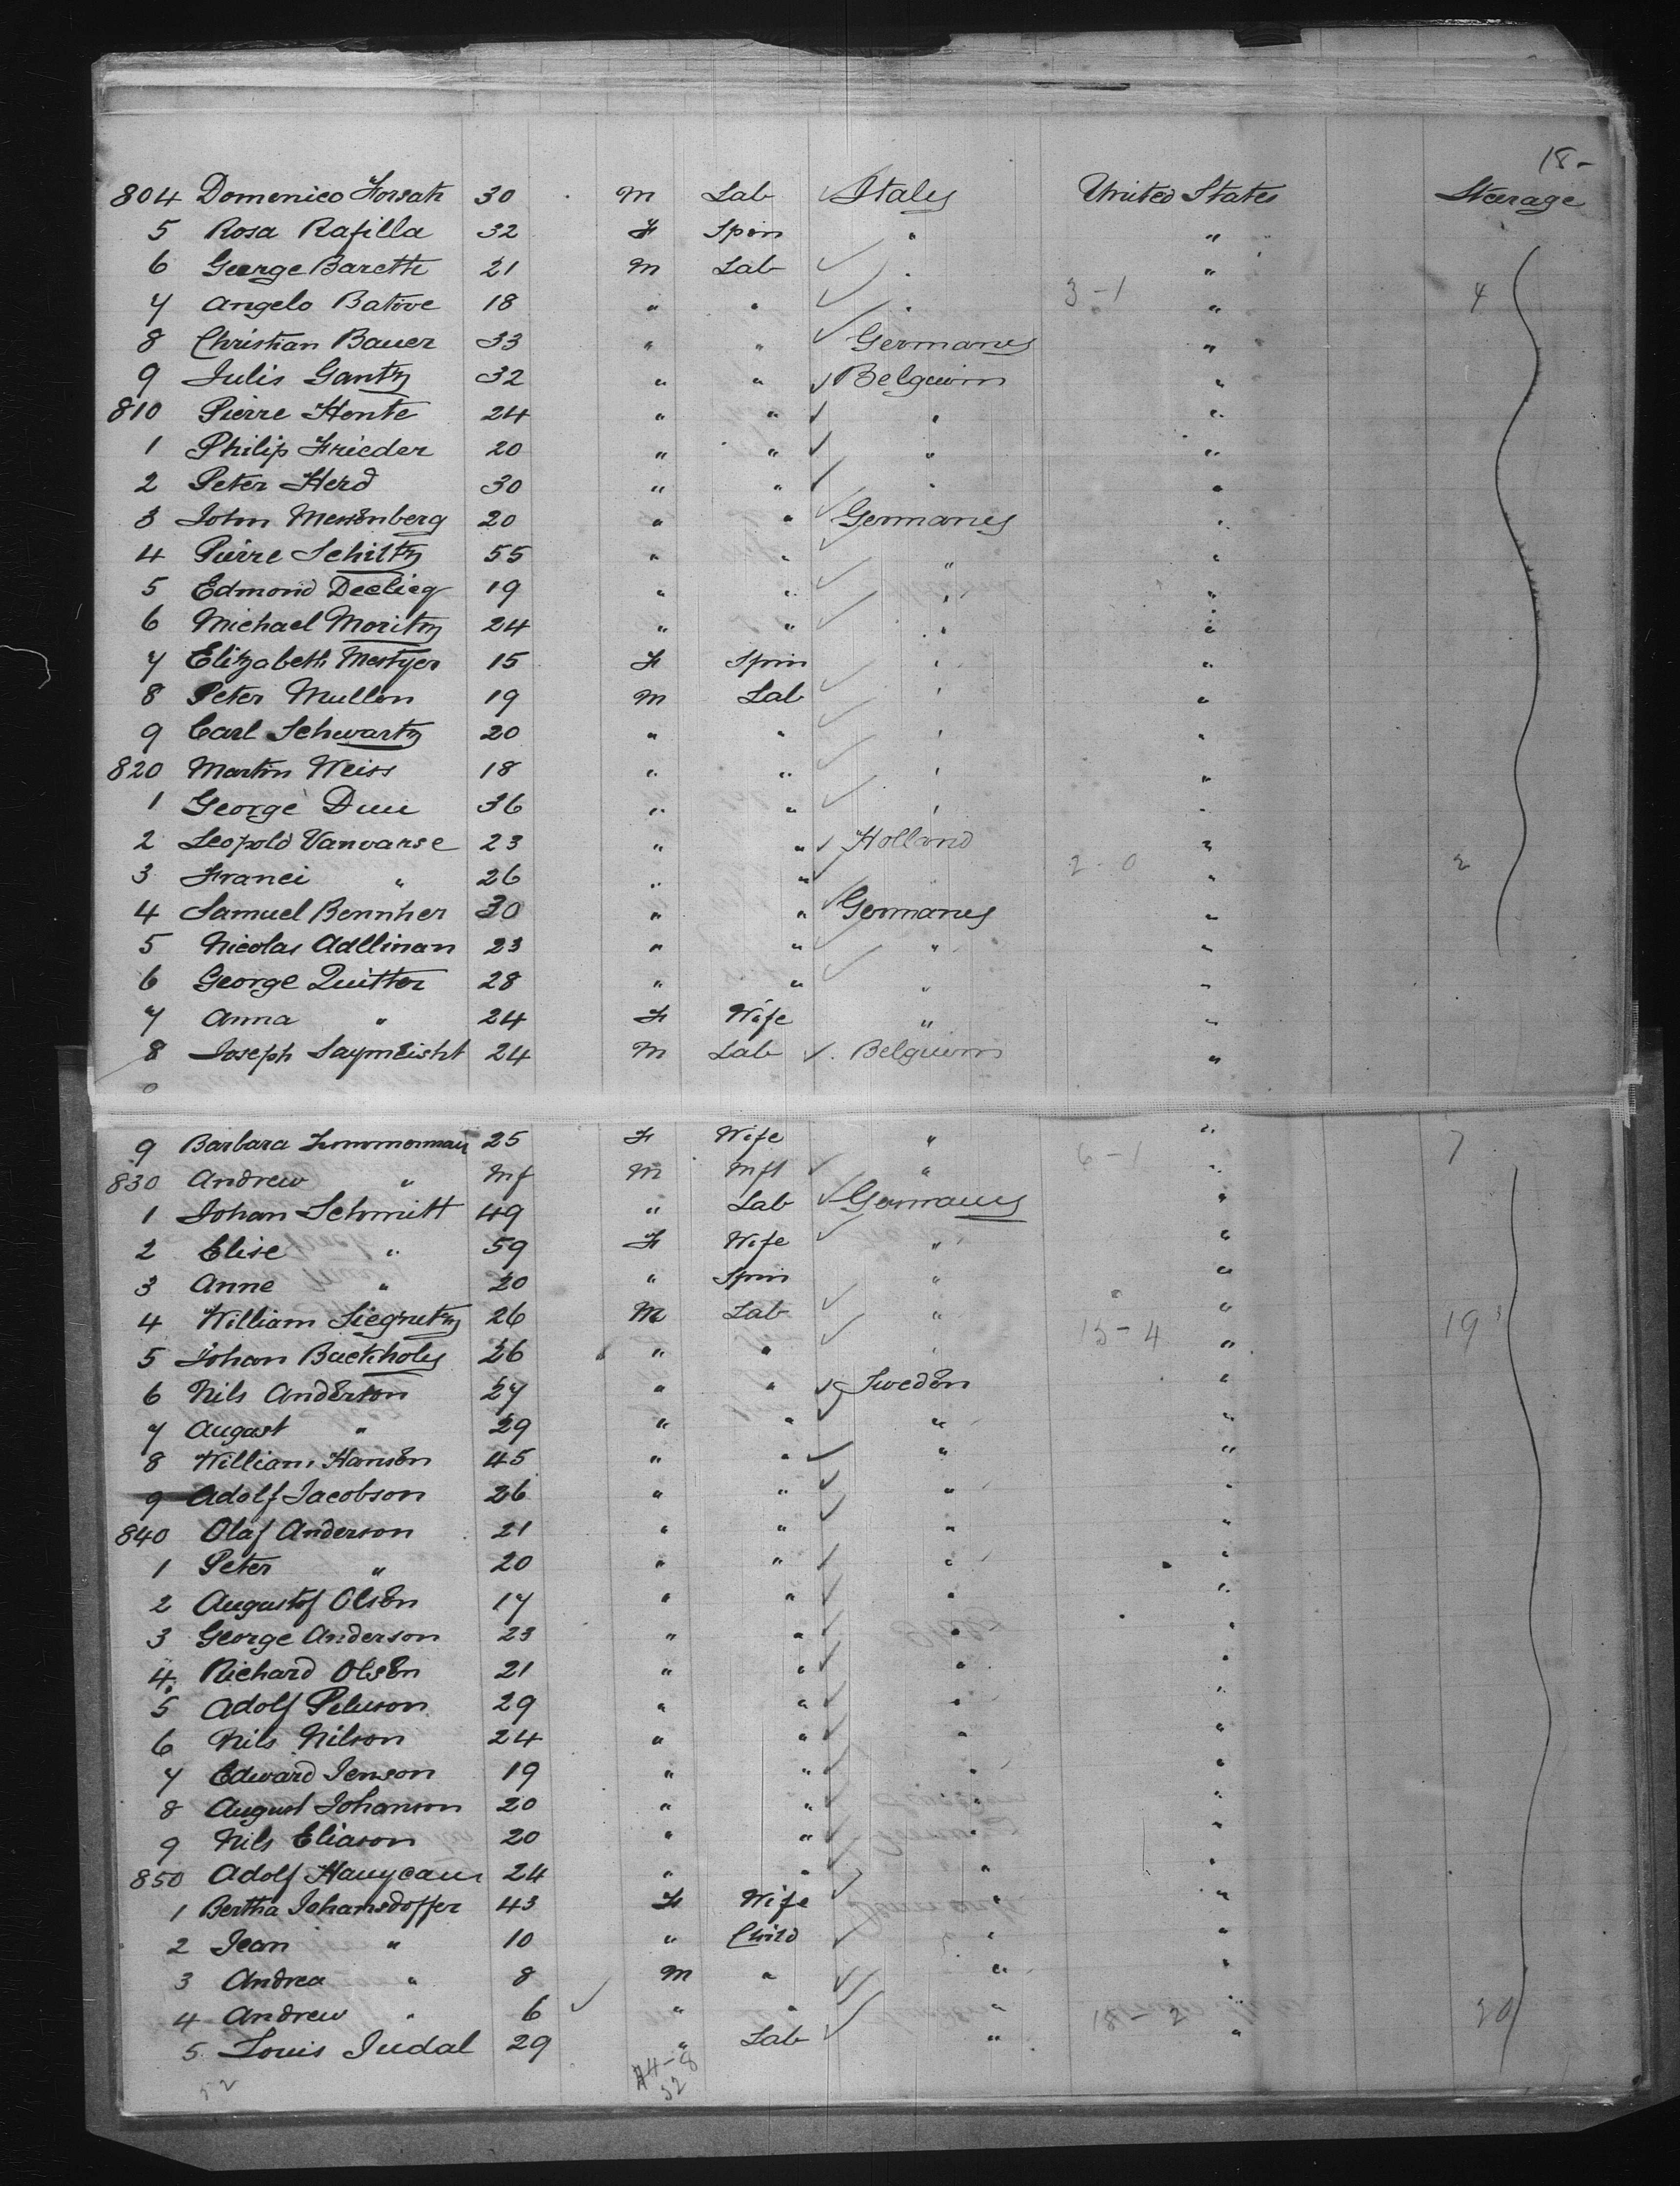 18-
804 Domenico Forsak 30 M Lab ✓ Italy United States Steerage
5 Rosa Rafilla 32 F Spin " "
6 George Baretti 21 M Lab ✓ " "
7 Angelo Batove 18 " " ✓ " 3-1 " 4
8 Christian Bauer 33 " " ✓ Germany "
9 Julis Gantz 32 " " ✓ Belguim "
810 Pierre Honte 24 " " ✓ " "
1 Philip Frieder 20 " " ✓ " "
2 Peter Herd 30 " " ✓ " "
3 John Messenberg 20 " " ✓ Germany "
4 Pierre Schiltz 55 " " ✓ " "
5 Edmond 19 " " ✓ " "
6 Michael Moritz 24 " " ✓ " "
7 Elizabeth Mestyer 15 F Spin " "
8 Peter Mullen 19 M Lab ✓ " "
9 Carl Schwartz 20 " " ✓ " "
820 Martin Weiss 18 " " ✓ " "
1 George Duu 36 " " ✓ " "
2 Leopold Vanvarse 23 " " ✓ Holland "
3 Franci " 26 " " ✓ " 2-0 " 2
4 Samuel Bennher 30 " " ✓ Germany "
5 Nicolas Adllinan 23 " " ✓ " "
6 George Quitter 28 " " ✓ " "
7 Anna " 24 F Wife " "
8 Joseph Saymeisht 24 M Lab ✓ Belguim "
9 Barbara Zimmermann 25 F Wife " 6-1 " 7
830 Andrew " Inf M Inft ✓ " "
1 Johan Schmitt 49 " Lab ✓ Germany "
2 Elise " 59 F Wife ✓ " "
3 Anne " 20 " Spin " "
4 William Siegrutz 26 M Lab ✓ " 15-4 " 19
5 Johan Buckholz 26 " " ✓ " "
6 Nils Anderson 27 " " ✓ Sweden "
7 August " 29 " " ✓ " "
8 William Hansen 45 " " ✓ " "
9 Adolf Jacobson 26 " " ✓ " "
840 Olaf Anderson 21 " " ✓ " "
1 Peter " 20 " " ✓ " "
2 Augustof Olsen 17 " " ✓ " "
3 George Anderson 23 " " ✓ " "
4 Richard Olsen 21 " " ✓ " "
5 Adolf 29 " " ✓ " "
6 Nils Nilson 24 " " ✓ " "
7 Edward Jenson 19 " " ✓ " "
8 August Johanson 20 " " ✓ " "
9 Nils Eliason 20 " " ✓ " "
850 Adolf 24 " " ✓ " "
1 Bertha Johansdoffer 43 F Wife " "
2 Jean " 10 " Child ✓ " "
3 Andrea " 8 M " ✓ " "
4 Andrew " 6 ✓ " " ✓ " 18-2 " 20
5 Louis Judal 29 " Lab ✓ " "
52 44-8
52